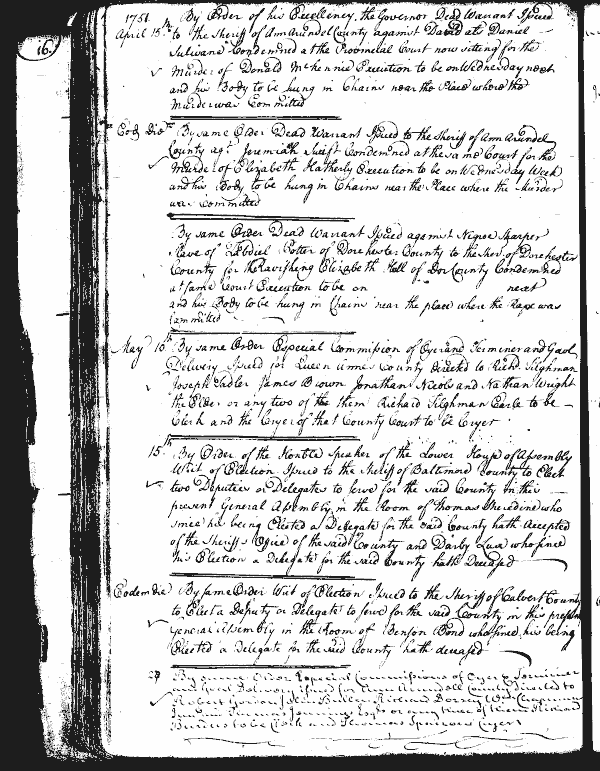 16.
1751. By Order of his Excellency, the Governor Dead Warrant Issued
April 15.th to the Sheriff of AnnArundel County against David als Daniel
Sulivane Condemned at the Provincial Court now sitting for the
Murder of Donald McKennie Execution to be on Wednesday next
and his Body to be hung in Chains near the Place where the
Murder was Committed
Eod. Die By same Order Dead Warrant Issued to the Sheriff of Ann Arundel
County agt. Jeremiah Swift Condemned at the same Court for the
Murder of Elizabeth Hatherly Execution to be on Wednesday Week
and his Body to be hung in Chains near the Place where the Murder
was Committed
By same Order Dead Warrant Issued against Negroe Sharper
Slave of Potter of Dorchester County to the Sher. of Dorchester
County for the Ravishing Elizabeth Hall of Dor County Condemned
at same Court Execution to be on next
and his Body to be hung in Chains near the place where the Rape was
Committed
May 10.th By same Order Especial Commission of Oyer and Terminer and Gaol
Delivery Issued for Queen Annes County directed to Richd. Tilghman
Joseph Sudler James Brown Jonathan Nicols and Nathan Wright
the Elder or any two of the them Richard Tilghman Earle to be
Clerk and the Cryer of that County Court to be Cryer
15.th By Order of the Honble Speaker of the Lower House of Assembly
Writ of Election Issued to the Sheriff of Baltimore County to Elect
two Deputies or Delegates to serve for the said County in this
present General Assembly, in the Room of Thomas Sheredine who
since his being Elected a Delegate for the said County hath Accepted
of the Sheriffs Office of the said County and Darby Lux who since
his Election a Delegate for the said County hath Deceased
Eodem die By same Order Writ of Election Issued to the Sheriff of Calvert County
to Elect a Deputy or Delegate to serve for the said County in this present
General Assembly in the Room of Benson Bond who since his being
Elected a Delegate for the said County hath deceased
By same Order Especial Commissions of Oyer & Terminer
and Goal Delivery Issued for Ann Arundell County directed to
Robert Gordon, John Bullen
Esqrs or any three of them Richard
to be Clerk and Thomas Cryer